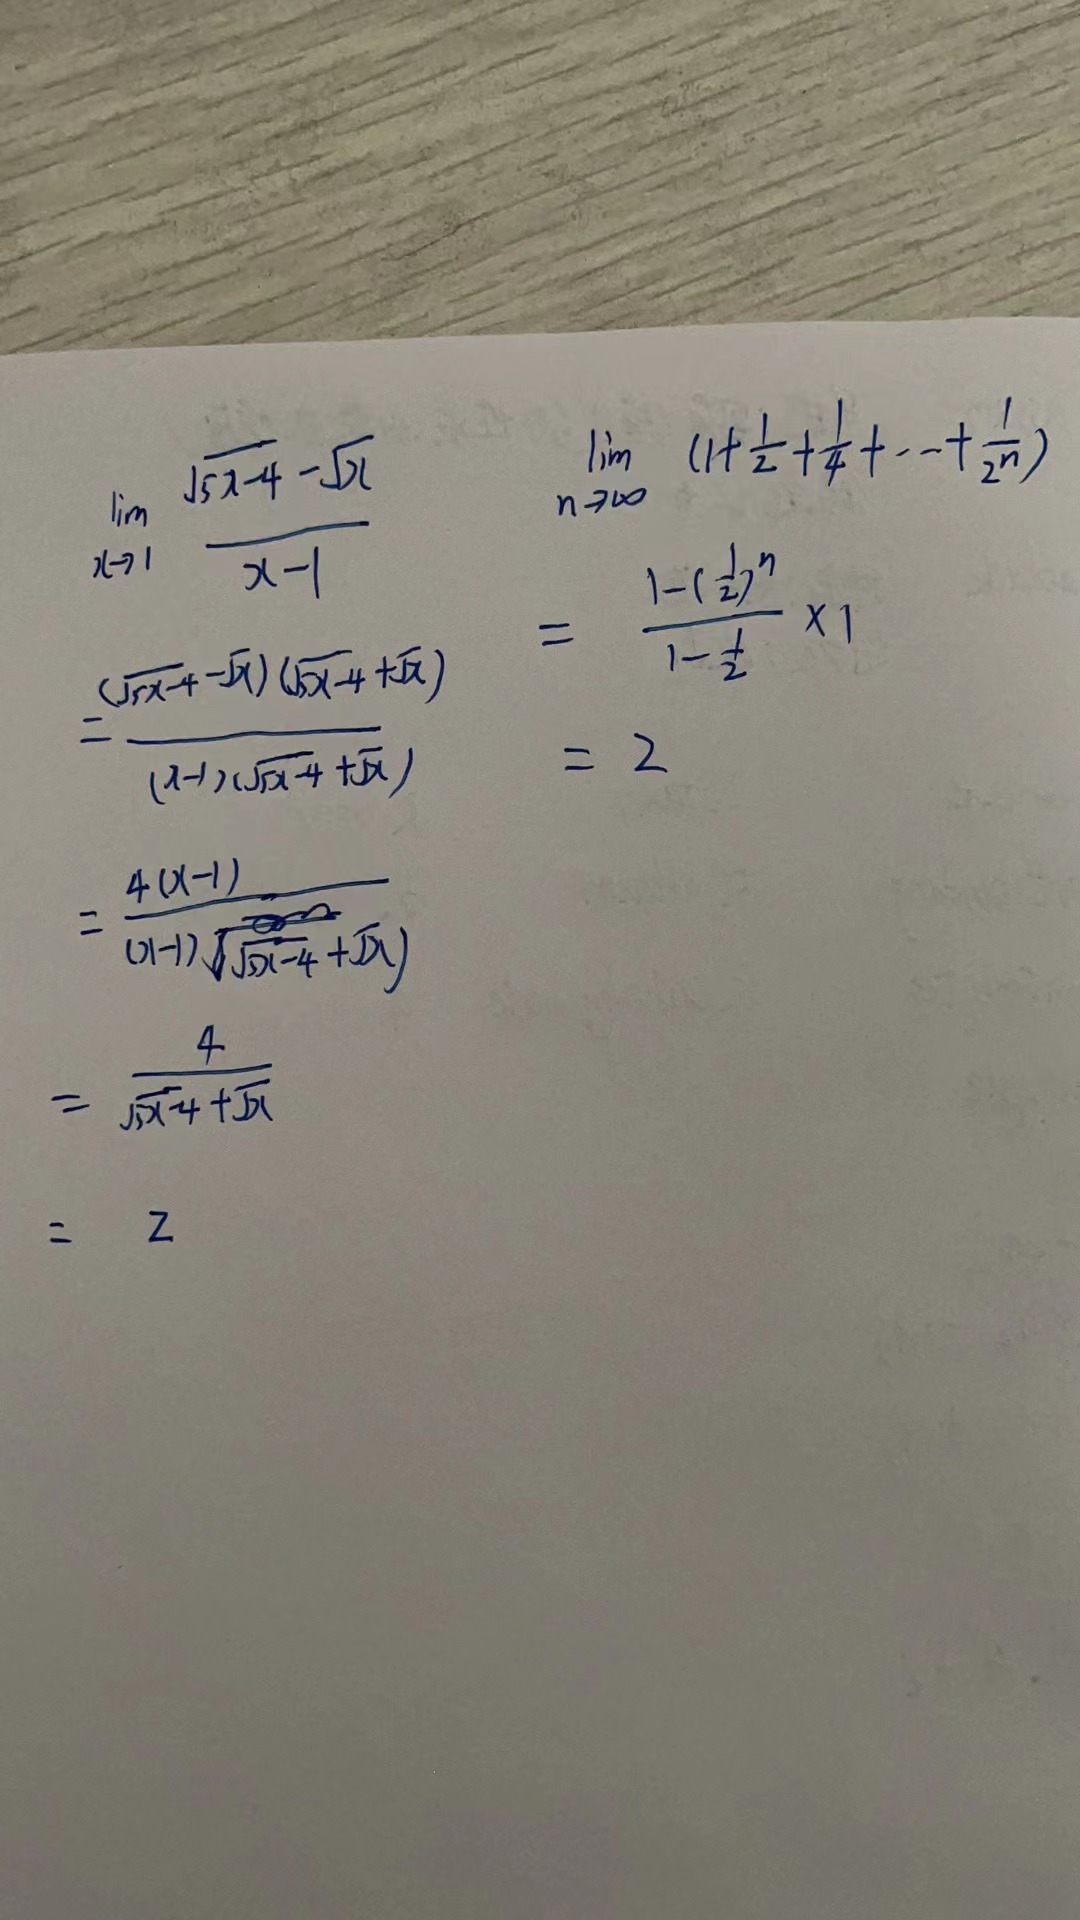 lim x→1 (√(5x-4) - √x) / (x-1)
= (√(5x-4) - √x)(√(5x-4) + √x) / (x-1)(√(5x-4) + √x)
= 4(x-1) / (x-1)(√(5x-4) + √x)
= 4 / (√(5x-4) + √x)
= 2
lim n→∞ (1 + 1/2 + 1/4 + ... + 1/2^n)
= (1-(1/2)^n) / (1-1/2) × 1
= 2